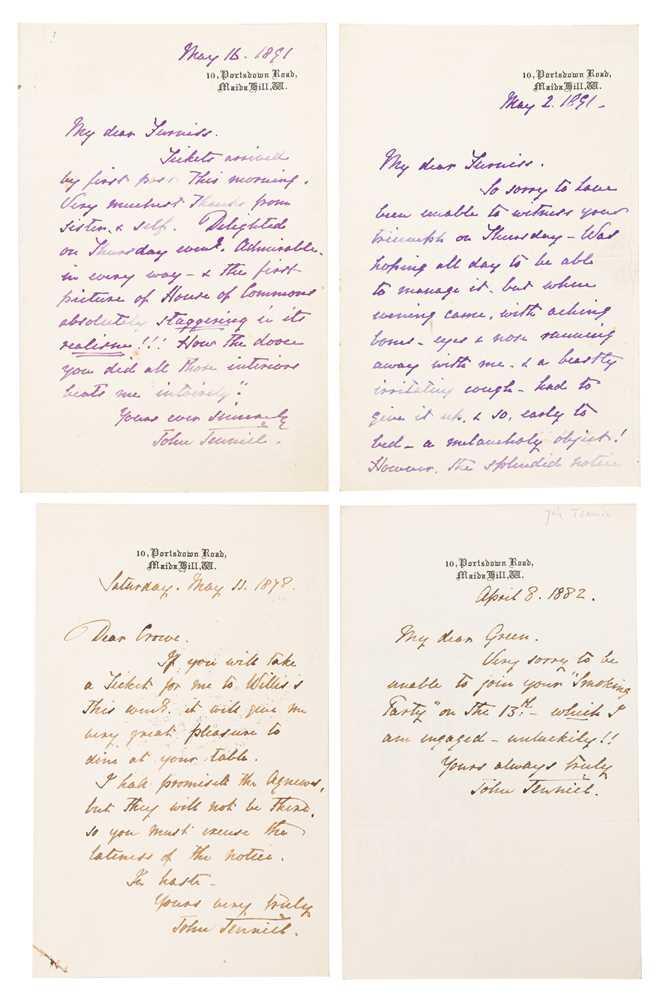 May 16. 1891
10, Portsdown Road,
Maida Hill, W.
My dear Furniss.
Tickets arrived
by first post this morning.
Very muchest thanks from
Sister & self. Delighted
on Thursday even.g. Admirable
in every way - & the first
picture of House of Commons
absolutely staggering in its
realism!!! How the dooce
you did all those interiors
beats me "intirely".
Yours ever sincerely
John Tenniel.
10, Portsdown Road,
Maida Hill, W.
May 2. 1891 -
My dear Furniss.
So sorry to have
been unable to witness your
triumph on Thursday - Was
hoping all day to be able
to manage it. but when
evening came, with aching
bones - eyes & nose running
away with me - & a beastly
irritating cough - had to
give it up, & so, early to
bed - a melancholy object!
However, the splendid notice
10, Portsdown Road,
Maida Hill, W.
Saturday. May 11. 1878.
Dear Crowe.
If you will take
a Ticket for me to Willis's
this even.g. it will give me
very great pleasure to
dine at your table.
I half promised the Agnews,
but they will not be there,
so you must excuse the
lateness of the notice.
In haste -
Yours very truly
John Tenniel.
10, Portsdown Road,
Maida Hill, W.
April 8. 1882.
My dear Green.
Very sorry to be
unable to join your "Smoking
Party" on the 13th - which I
am engaged - unluckily!!
Yours always truly
John Tenniel.